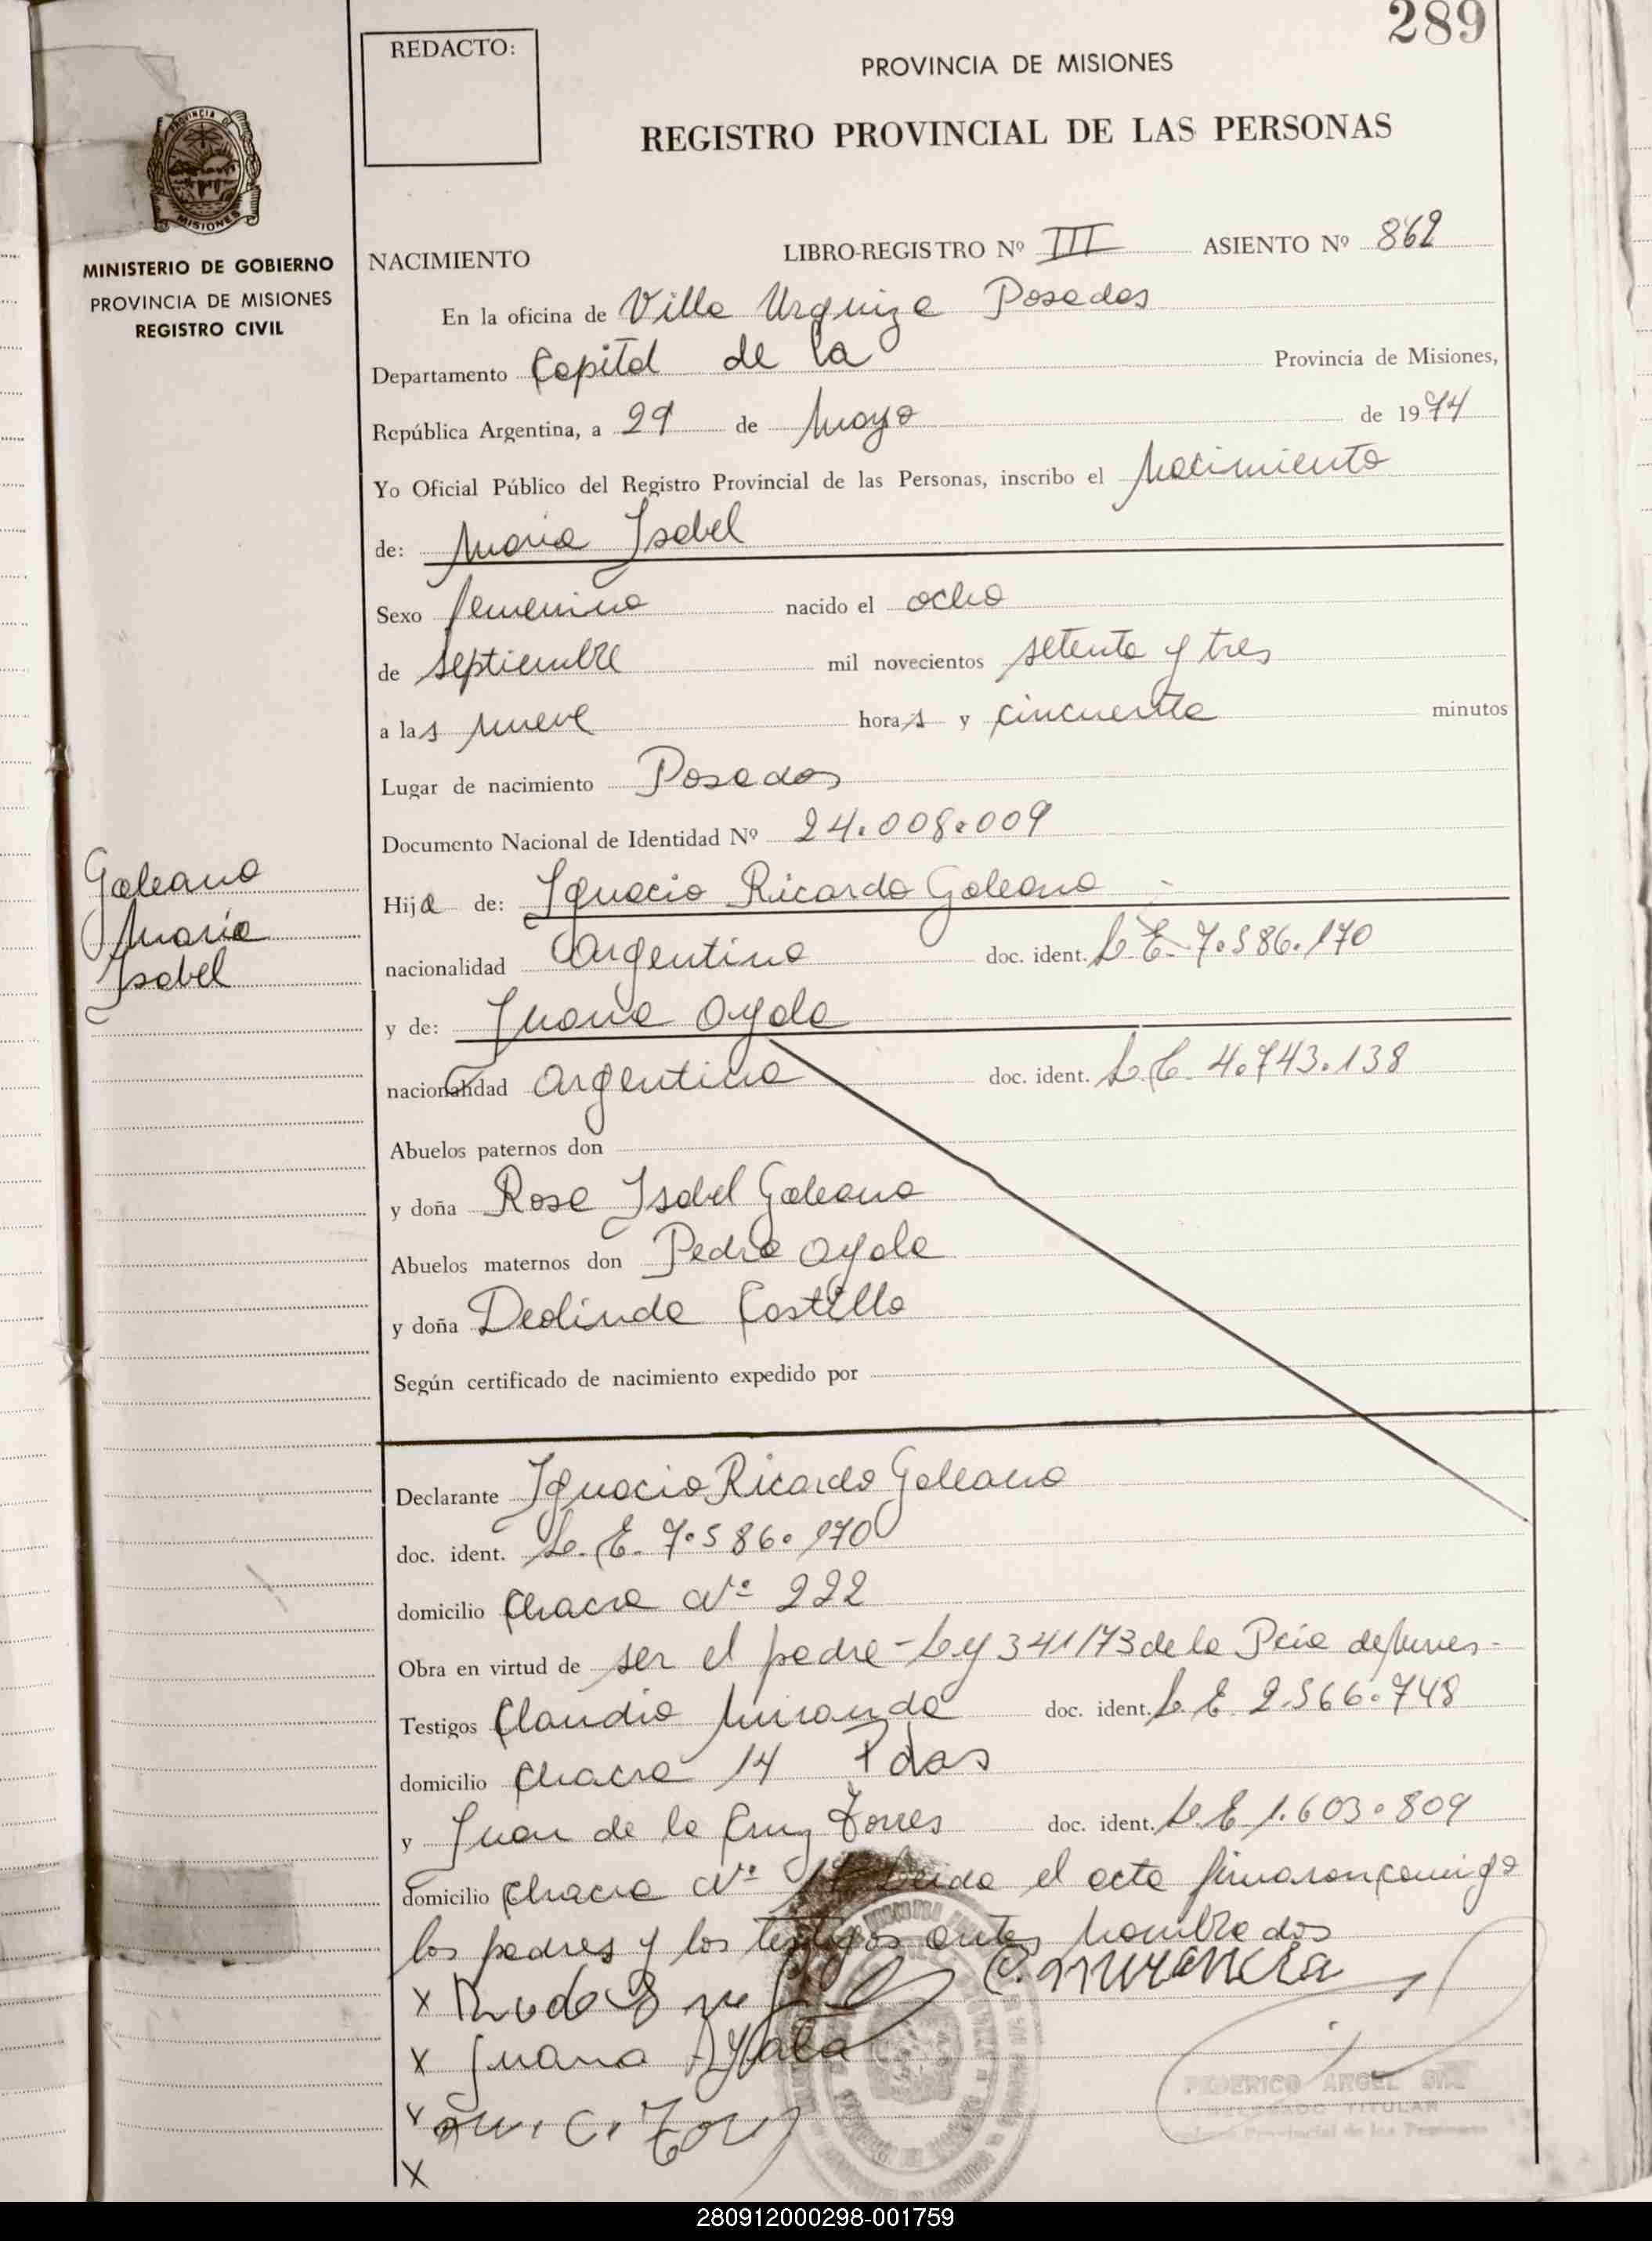 289
REDACTO:
PROVINCIA DE MISIONES
REGISTRO PROVINCIAL DE LAS PERSONAS
PROVINCIA DE
MISIONES
MINISTERIO DE GOBIERNO
PROVINCIA DE MISIONES
REGISTRO CIVIL
NACIMIENTO LIBRO-REGISTRO Nº III ASIENTO Nº 862
En la oficina de Villa Urquiza Posadas
Departamento Capital de la Provincia de Misiones,
República Argentina, a 29 de Mayo de 1974
Yo Oficial Público del Registro Provincial de las Personas, inscribo el Nacimiento
de: María Isabel
Sexo femenino nacido el ocho
de septiembre mil novecientos setenta y tres
a las nueve horas y cincuenta minutos
Lugar de nacimiento Posadas
Documento Nacional de Identidad Nº 24.008.009
Galeano
María
Isabel
Hija de: Ignacio Ricardo Galeano
nacionalidad Argentino doc. ident. L.E. 7.586.170
y de: Juana Ayala
nacionalidad argentina doc. ident. L.C. 4.743.138
Abuelos paternos don
y doña Rosa Isabel Galeano
Abuelos maternos don Pedro Ayala
y doña Deolinda Castillo
Según certificado de nacimiento expedido por
Declarante Ignacio Ricardo Galeano
doc. ident. L.E. 7.586.170
domicilio Chacra Nº 222
Obra en virtud de ser el padre - Ley 341/73 de la Pcia de Mnes-
Testigos Claudio Miranda doc. ident. L.E 2.566.748
domicilio Chacra 14 Pdas
y Juan de la Cruz Torres doc. ident. L.E 1.603.809
domicilio Chacra Nº Leida el acta firmaron conmigo
los padres y los testigos antes nombrados
X C. Miranda
X Juana Ayala
X
X
FEDERICO ANGEL
DELEGADO TITULAR
Provincial de las Personas
280912000298-001759